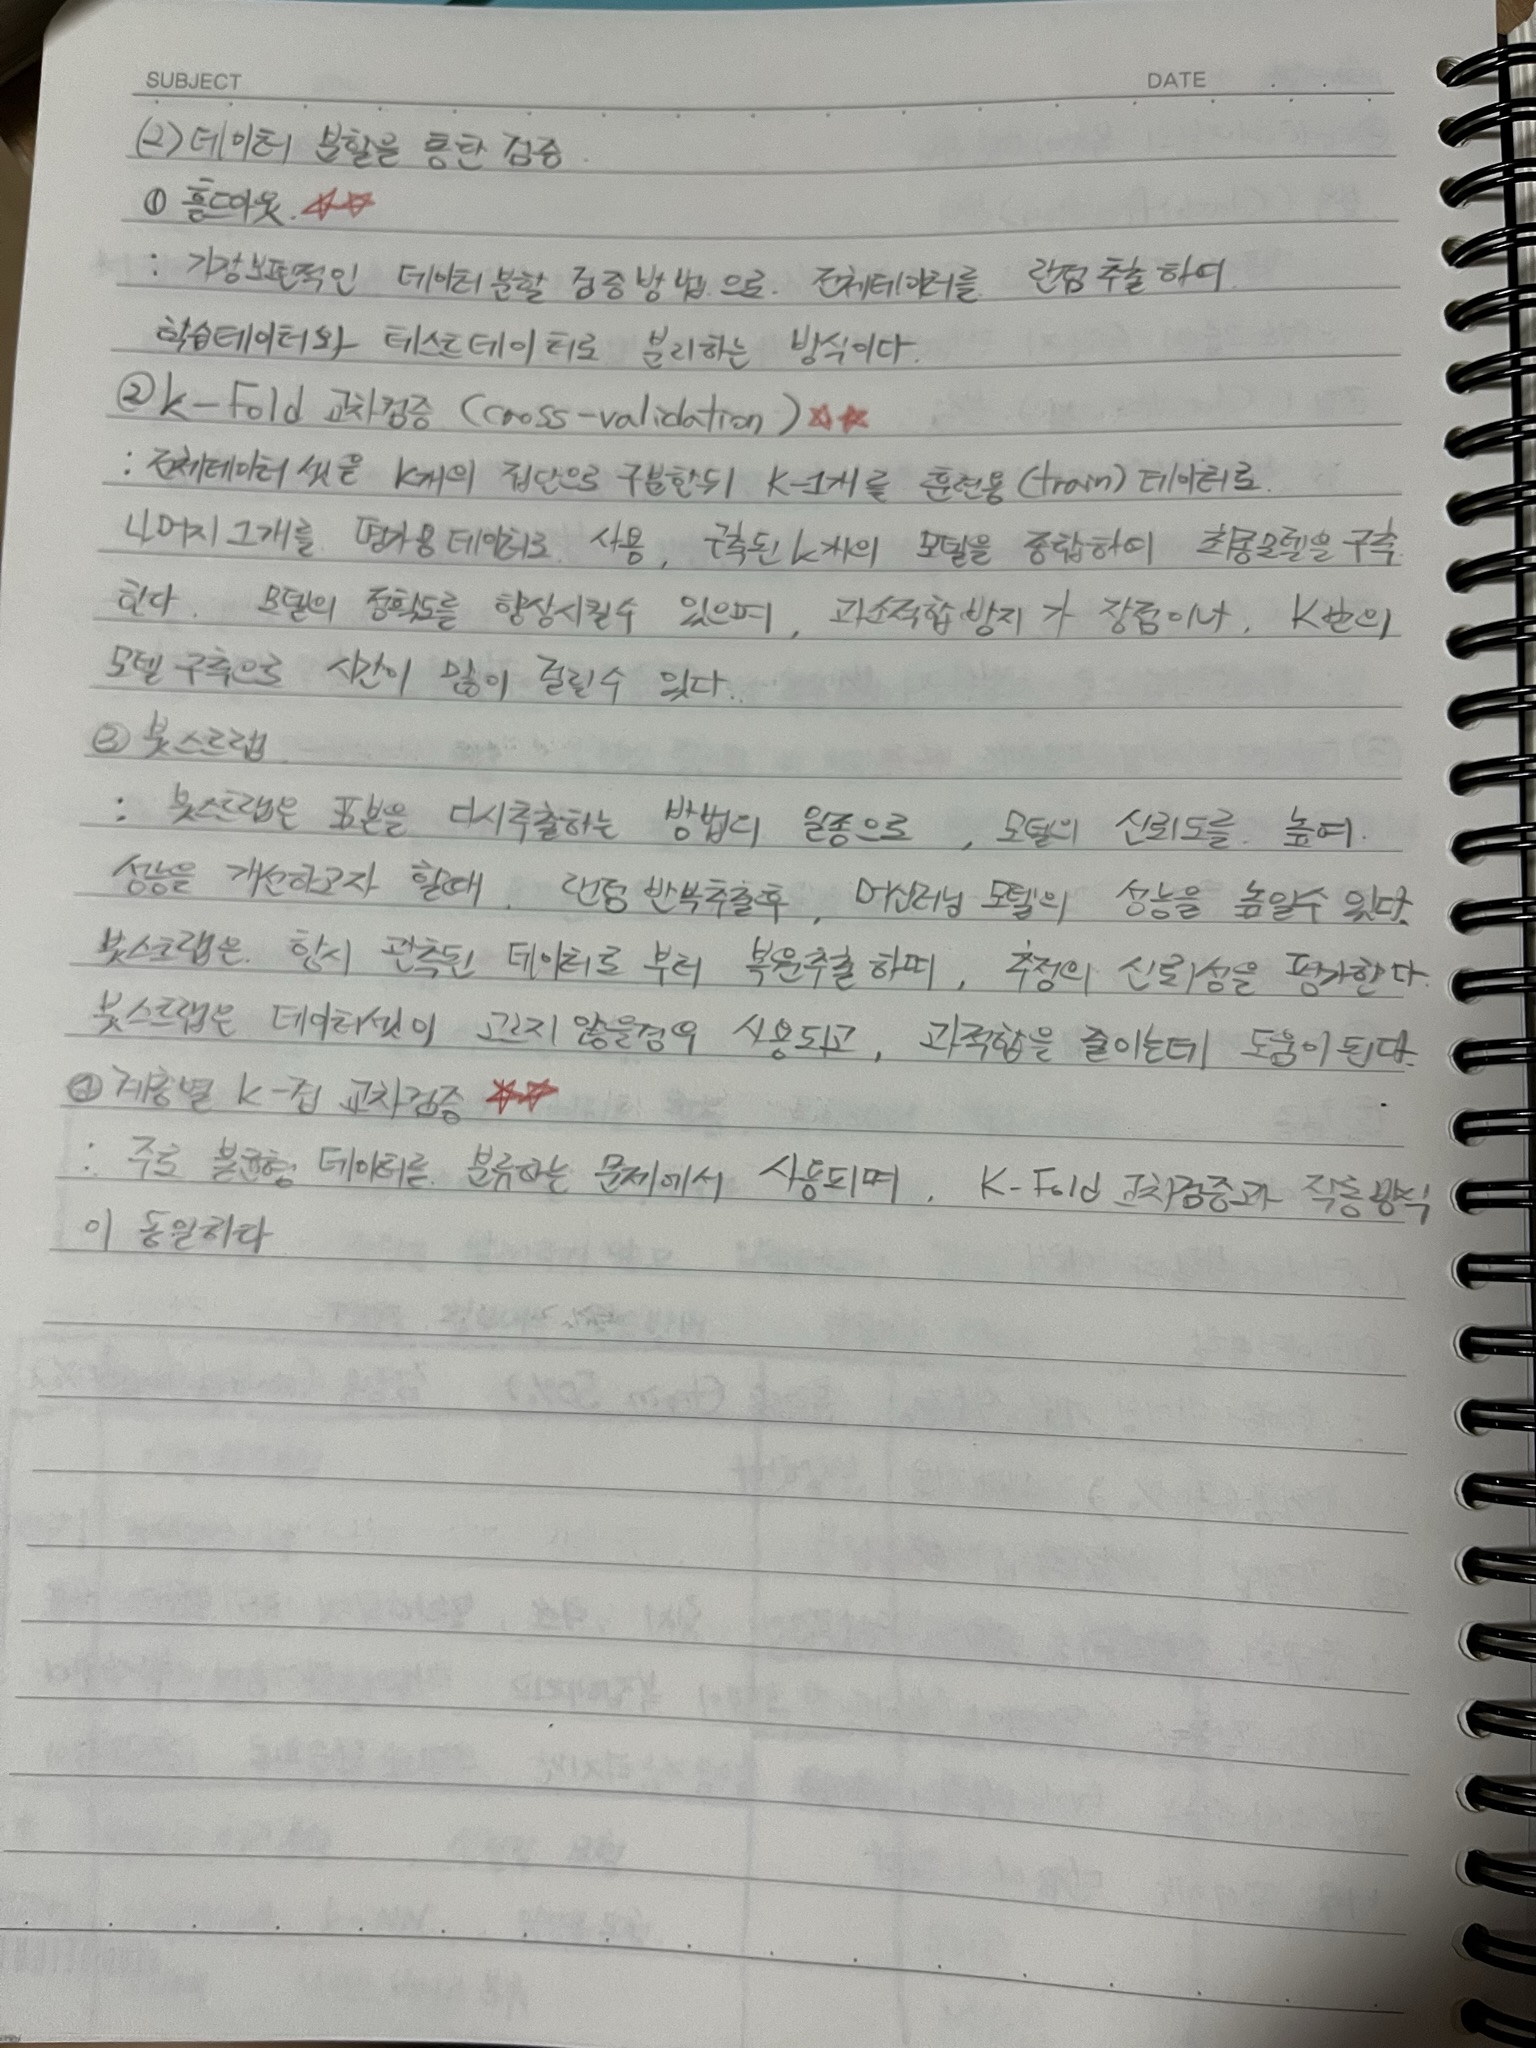 SUBJECT
DATE
(2) 데이터 분할을 통한 검증
① 홀드아웃. ☆☆
: 가장보편적인 데이터분할 검증방법으로. 전체데이터를 랜덤추출하여
학습데이터와 테스트데이터로 분리하는 방식이다.
② k-Fold 교차검증 (cross-validation) ☆☆
: 전체데이터 셋을 k개의 집단으로 구분한뒤 k-1개를 훈련용(train) 데이터로.
나머지 1개를 평가용데이터로 사용, 구축된 k개의 모델을 종합하여 최종모델을 구축
한다. 모델의 정확도를 향상시킬수 있으며, 과소적합방지가 장점이나, K번의
모델 구축으로 시간이 많이 걸릴수 있다.
③ 붓스트랩
: 붓스트랩은 표본을 다시추출하는 방법의 일종으로, 모델의 신뢰도를 높여.
성능을 개선하고자 할때, 랜덤 반복추출후, 머신러닝 모델의 성능을 높일수 있다.
붓스트랩은. 항시 관측된 데이터로 부터 복원추출하며, 추정의 신뢰성을 평가한다.
붓스트랩은 데이터셋이 고르지 않을경우 사용되고, 과적합을 줄이는데 도움이 된다.
④ 계층별 k-겹 교차검증 ☆☆
: 주로 불균형 데이터를 분류하는 문제에서 사용되며, K-Fold 교차검증과 작동방식
이 동일하다